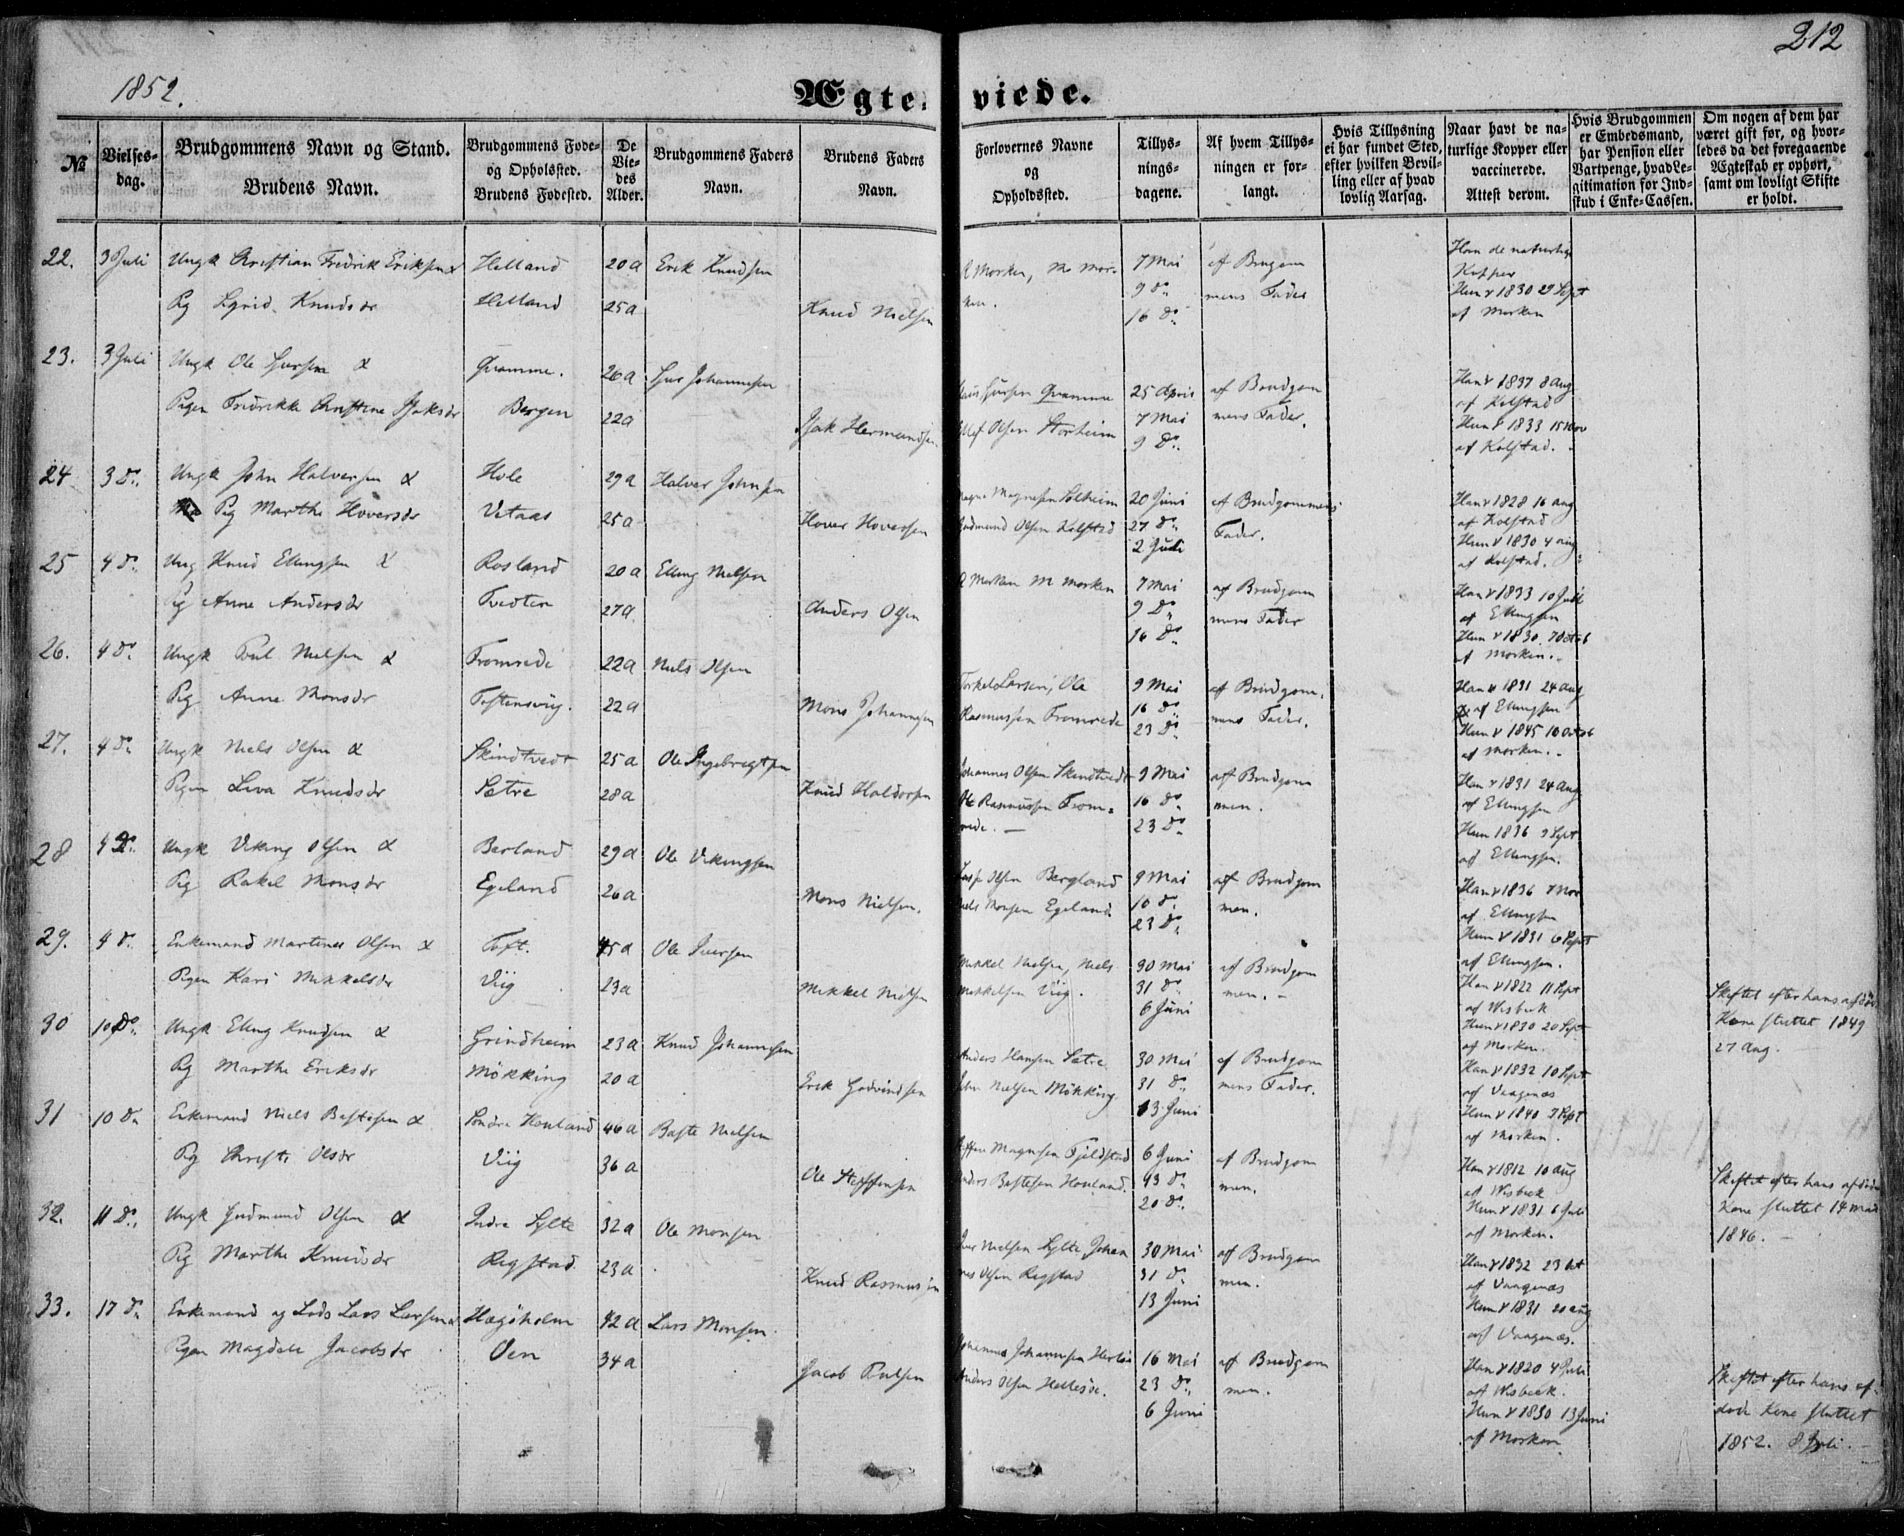 212
1852.
Ægteviede.
№
Vielsesdag.
Brudgommens Navn og Stand.
Brudens Navn.
Brudgommens Føde-
og Opholdsted.
Brudens Fødested.
De
Vie-
des
Alder.
Brudgommens Faders
Navn.
Brudens Faders
Navn.
Forlovernes Navne
og
Opholdssted.
Tillys-
nings-
dagene.
Af hvem Tillys-
ningen er for-
langt.
Hvis Tillysning
ei har fundet Sted,
efter hvilken Bevil-
ling eller af hvad
lovlig Aarsag.
Naar havt de na-
turlige Kopper eller
vaccinerede.
Attest derom.
Hvis Brudgommen
er Embedsmand,
har Pension eller
Vartpenge, hvad Le-
gitimation for Ind-
skud i Enke-Cassen.
Om nogen af dem har
været gift før, og hvor-
ledes da det foregaaende
Ægteskab er ophørt,
samt om lovligt Skifte
er holdt.
22. 3 Juli Ungk Christian Fredrik Eriksen & Helland 20a Erik Knudsen
Pg Sigrid Knudsdr Helland 25a Knud Nielsen
Morken, M Mor-
ken.
7 Mai
9 do
16 do
af Brugom
mens Fader
Han de naturlige
Kopper
Hun v 1830 29 Sept
af Morken
23. 3 Juli Ungk Ole &
Qvamme. 26a Johannesen
Pigen Fredrikke Christine Isaksdr Bergen 22a Isak Hermandsen
Qvamme
Olsen Storheim
25 April
7 Mai
9 do
af Brudgom
mens Fader.
Han v 1837 8 aug
af Kolstad
Hun v 1833 15 Nov
af Kolstad.
24 3 do Ungk John Halversen & Hole 29a Halver Johnsen
Pg Marthe Hoversdr Vetaas 25a Hover Hoversen
Magnesen Solheim
Gudmund Olsen Kolstad
20 Juni
27 do
2 Juli
af Brudgommens
Fader.
Han v 1828 16 aug
af Kolstad
Hun v 1830 4 aug
af Kolstad.
25 4 do Ung Knud Ellingsen & Rosland 20a Elling Nielsen
Pg Anne Andersdr Tvedten 27a Anders Olsen
Morken M Morken
7 Mai
9 do
16 do
af Brudgom
mens Fader
Han v 1833 10 Juli
af Ellingsen
Hun v 1830. 7 Octob
af Morken.
26. 4 do Ungk Poul Nielsen & Fromrede 22a Niels Olsen
Pg Anne Monsdr Toftensvig. 22a Mons Johannesen
Torkel Larsen, Ole
Rasmussen Fromrede
9 Mai
16 do
23 do
af Brudgom.
mens Fader.
Han v 1831 24 aug
af Ellingsen
Hun v 1845 10 Octob
af Morken.
27. 4 do Ungk Niels Olsen & Skindtvedt 25a Ole Ingebregtsen
Pigen Siva Knudsdr Sætre 28a Knud Haldorsen
Johannes Olsen Skindtvedt
Ole Rasmussen From-
rede.
9 Mai
16 do
23 do
aff Brudgom
men.
Han v 1831 24 aug
af Ellingsen
Hun 1836 9 Sept
af Ellingsen.
28 4 do Ungk Viking Olsen & Berland 29a Ole Vikingsen
Pg Rakel Monsdr Egeland 26a Mons Nielsen.
Olsen Bergland
Niels Monsen Egeland
9 Mai
16 do
23 do
aff Brudgom
men.
Han v 1836 7 Nov
af Ellingsen
Hun v 1831 6 Sept
af Ellingsen.
29. 4 do Enkemand Martinus Olsen & Toft. 45a Ole Iversen
Pigen Kari Mikkelsdr Viig 23a Mikkel Nielsen
Mikkel Nielsen, Niels
Mikkelsen Viig.
30 Mai
31 do
6 Juni
af Brudgom
men.
Han v 1822 11 Sept
af Wisbeck
Hun v 1830 20 Sept
af Morken.
Skiftet efter hans afdøde
Kone sluttet 1849
27 aug.
30 10 do Ungk Elling Knudsen & Grindheim 23a Knud Johannesen
Pg Marthe Eriksdr Møkking 20a Erik Godvindsen
Anders Hansen Sætre
John Nielsen Møkking
30 Mai
31 do
13 Juni
af Brudgom
mens Fader.
Han v 1832 10 Sept
af Vaagenæs
Hun v 1840 9 Sept
af Morken.
31 10 do Enkemand Niels Bastesen & Søndre Houland 46a Baste Nielsen
Pg Christi Olsdr Viig 36a Ole Steffensen
Steffen Magnesen Fjeldstad
Anders Bastesen Houland.
6 Juni
13 do
20 do
af Brudgom
men.
Han v 1812 10 aug
af Wisbeck
Hun v 1831 6 Juli
af Morken.
Skiftet efter hans afdøde
Kone sluttet 14 Mai
1846.
32. 11 do Ungk Gudmund Olsen & Indre Sylte 32a Ole Monsen
Pg Marthe Knudsdr Rigstad 23a Knud Rasmussen
Nielsen Sylte, Johan
nes Olsen Rigstad
30 Mai
31 do
13 Juni
aff Brudgom
men.
Han v 1832 23 Oct
af Vaagenæs
Hun v 1831 20 aug
aff Vaagenæs.
33. 17 do Enkemand og Lods Lars Larsen & Hægøholm 42a Lars Monsen.
Pigen Magdele Jacobsdr Øen 34a Jacob Poulsen
Johannes Johannesen
Anders Olsen Hellesøe.
16 Mai
23 do
6 Juni
aff Brudgom
men.
Han v 1820 4 Juli
aff Wisbeck.
Hun v 1830 13 Juni
af Morken
Skiftet efter hans af-
døde Kone sluttet
1852. 8 Juli.